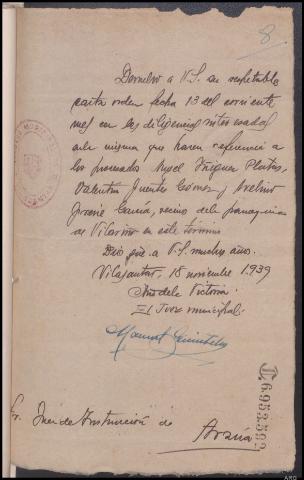 8
Devuelvo a V.S. su respetable
carta orden fecha 13 del corriente
mes en las diligencias interesadas
en la misma que hacen referencia a
los procesados Angel Iñiguez
Valentin Fuentes Gomez y Avelino
Garcia, vecinos de la parroquia
de Vilariño en este término
Dios gue. a V.S. muchos años.
Vilasantar, 18 noviembre 1939
Año de la Victoria.
El Juez municipal.
Manuel
6.953.592
Sr. Juez de Instrucción de
Arzúa